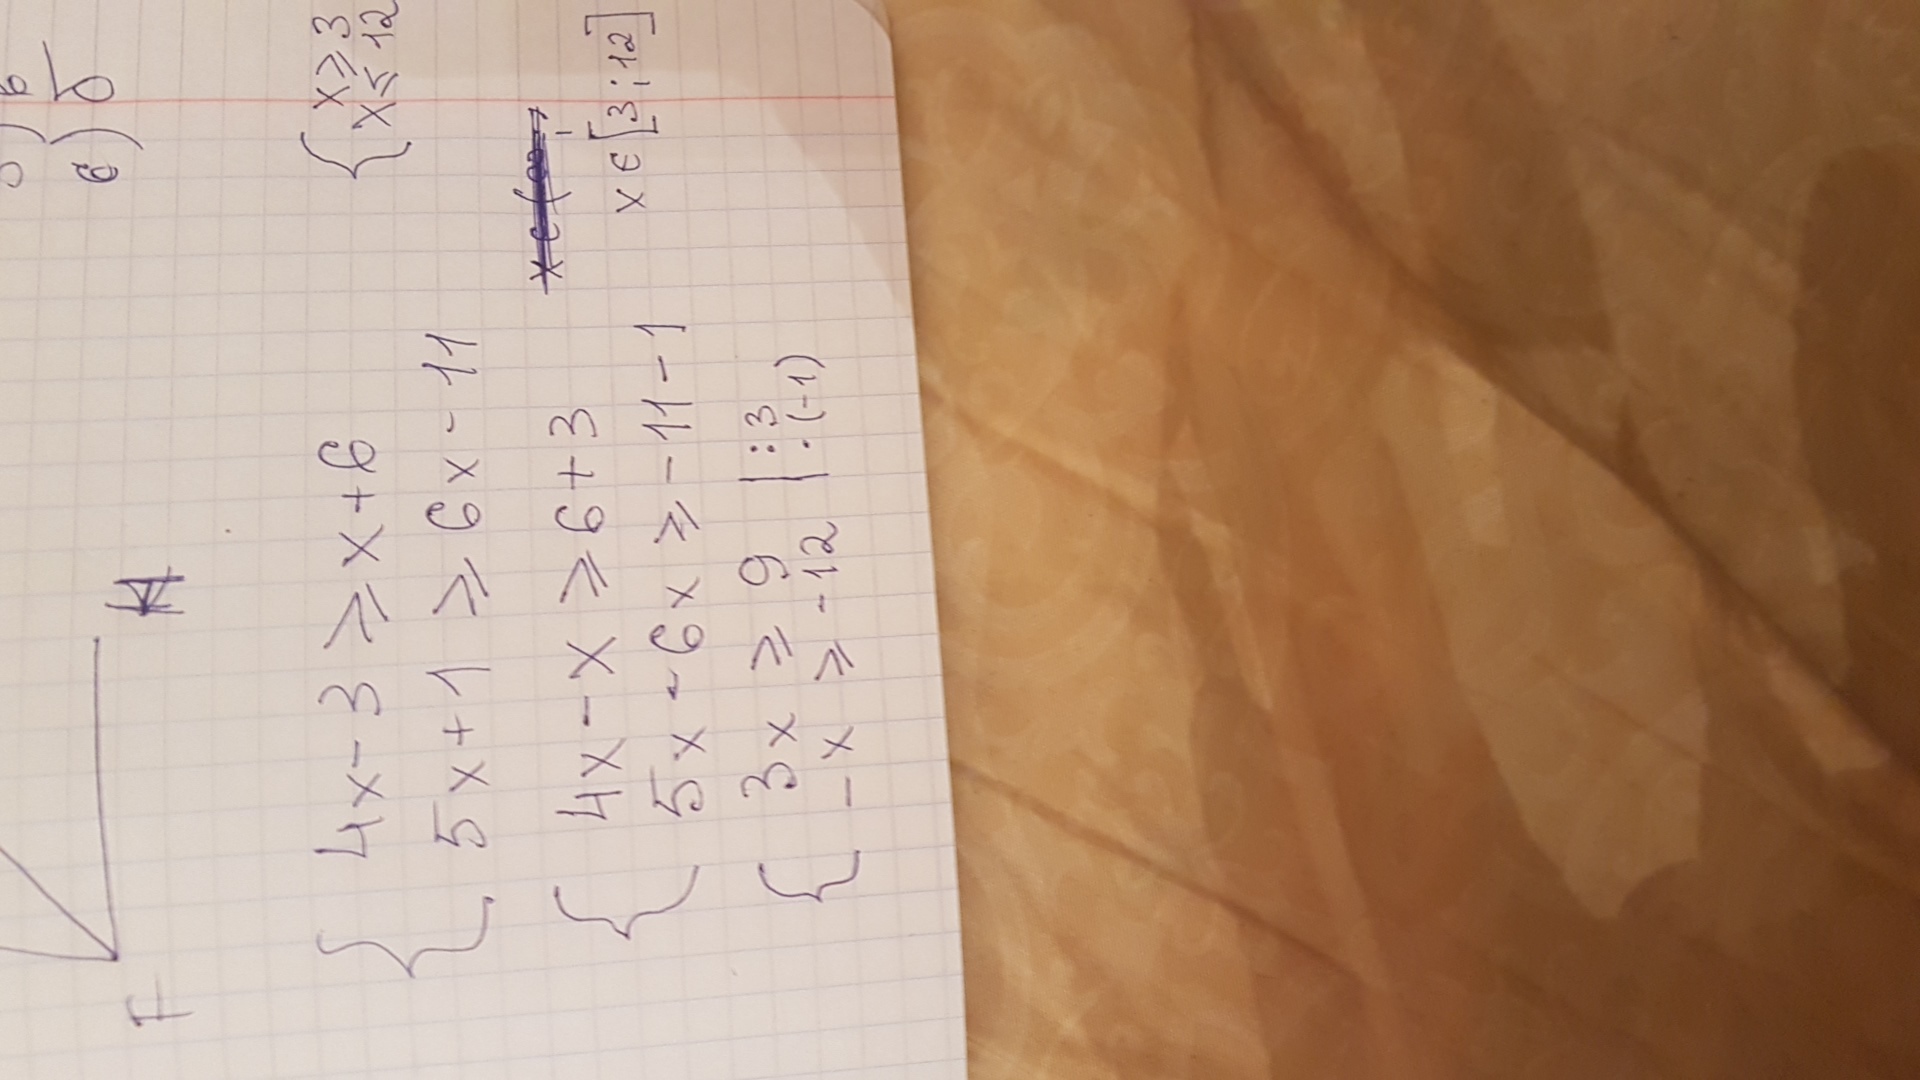 б
е) б
F
4x-3 ⩾ x+6
5x+1 ⩾ 6x-11
4x-x ⩾ 6+3
5x-6x ⩾ -11-1
3x ⩾ 9 |:3
-x ⩾ -12 |·(-1)
x⩾3
x⩽12
x ∈ [3;12]